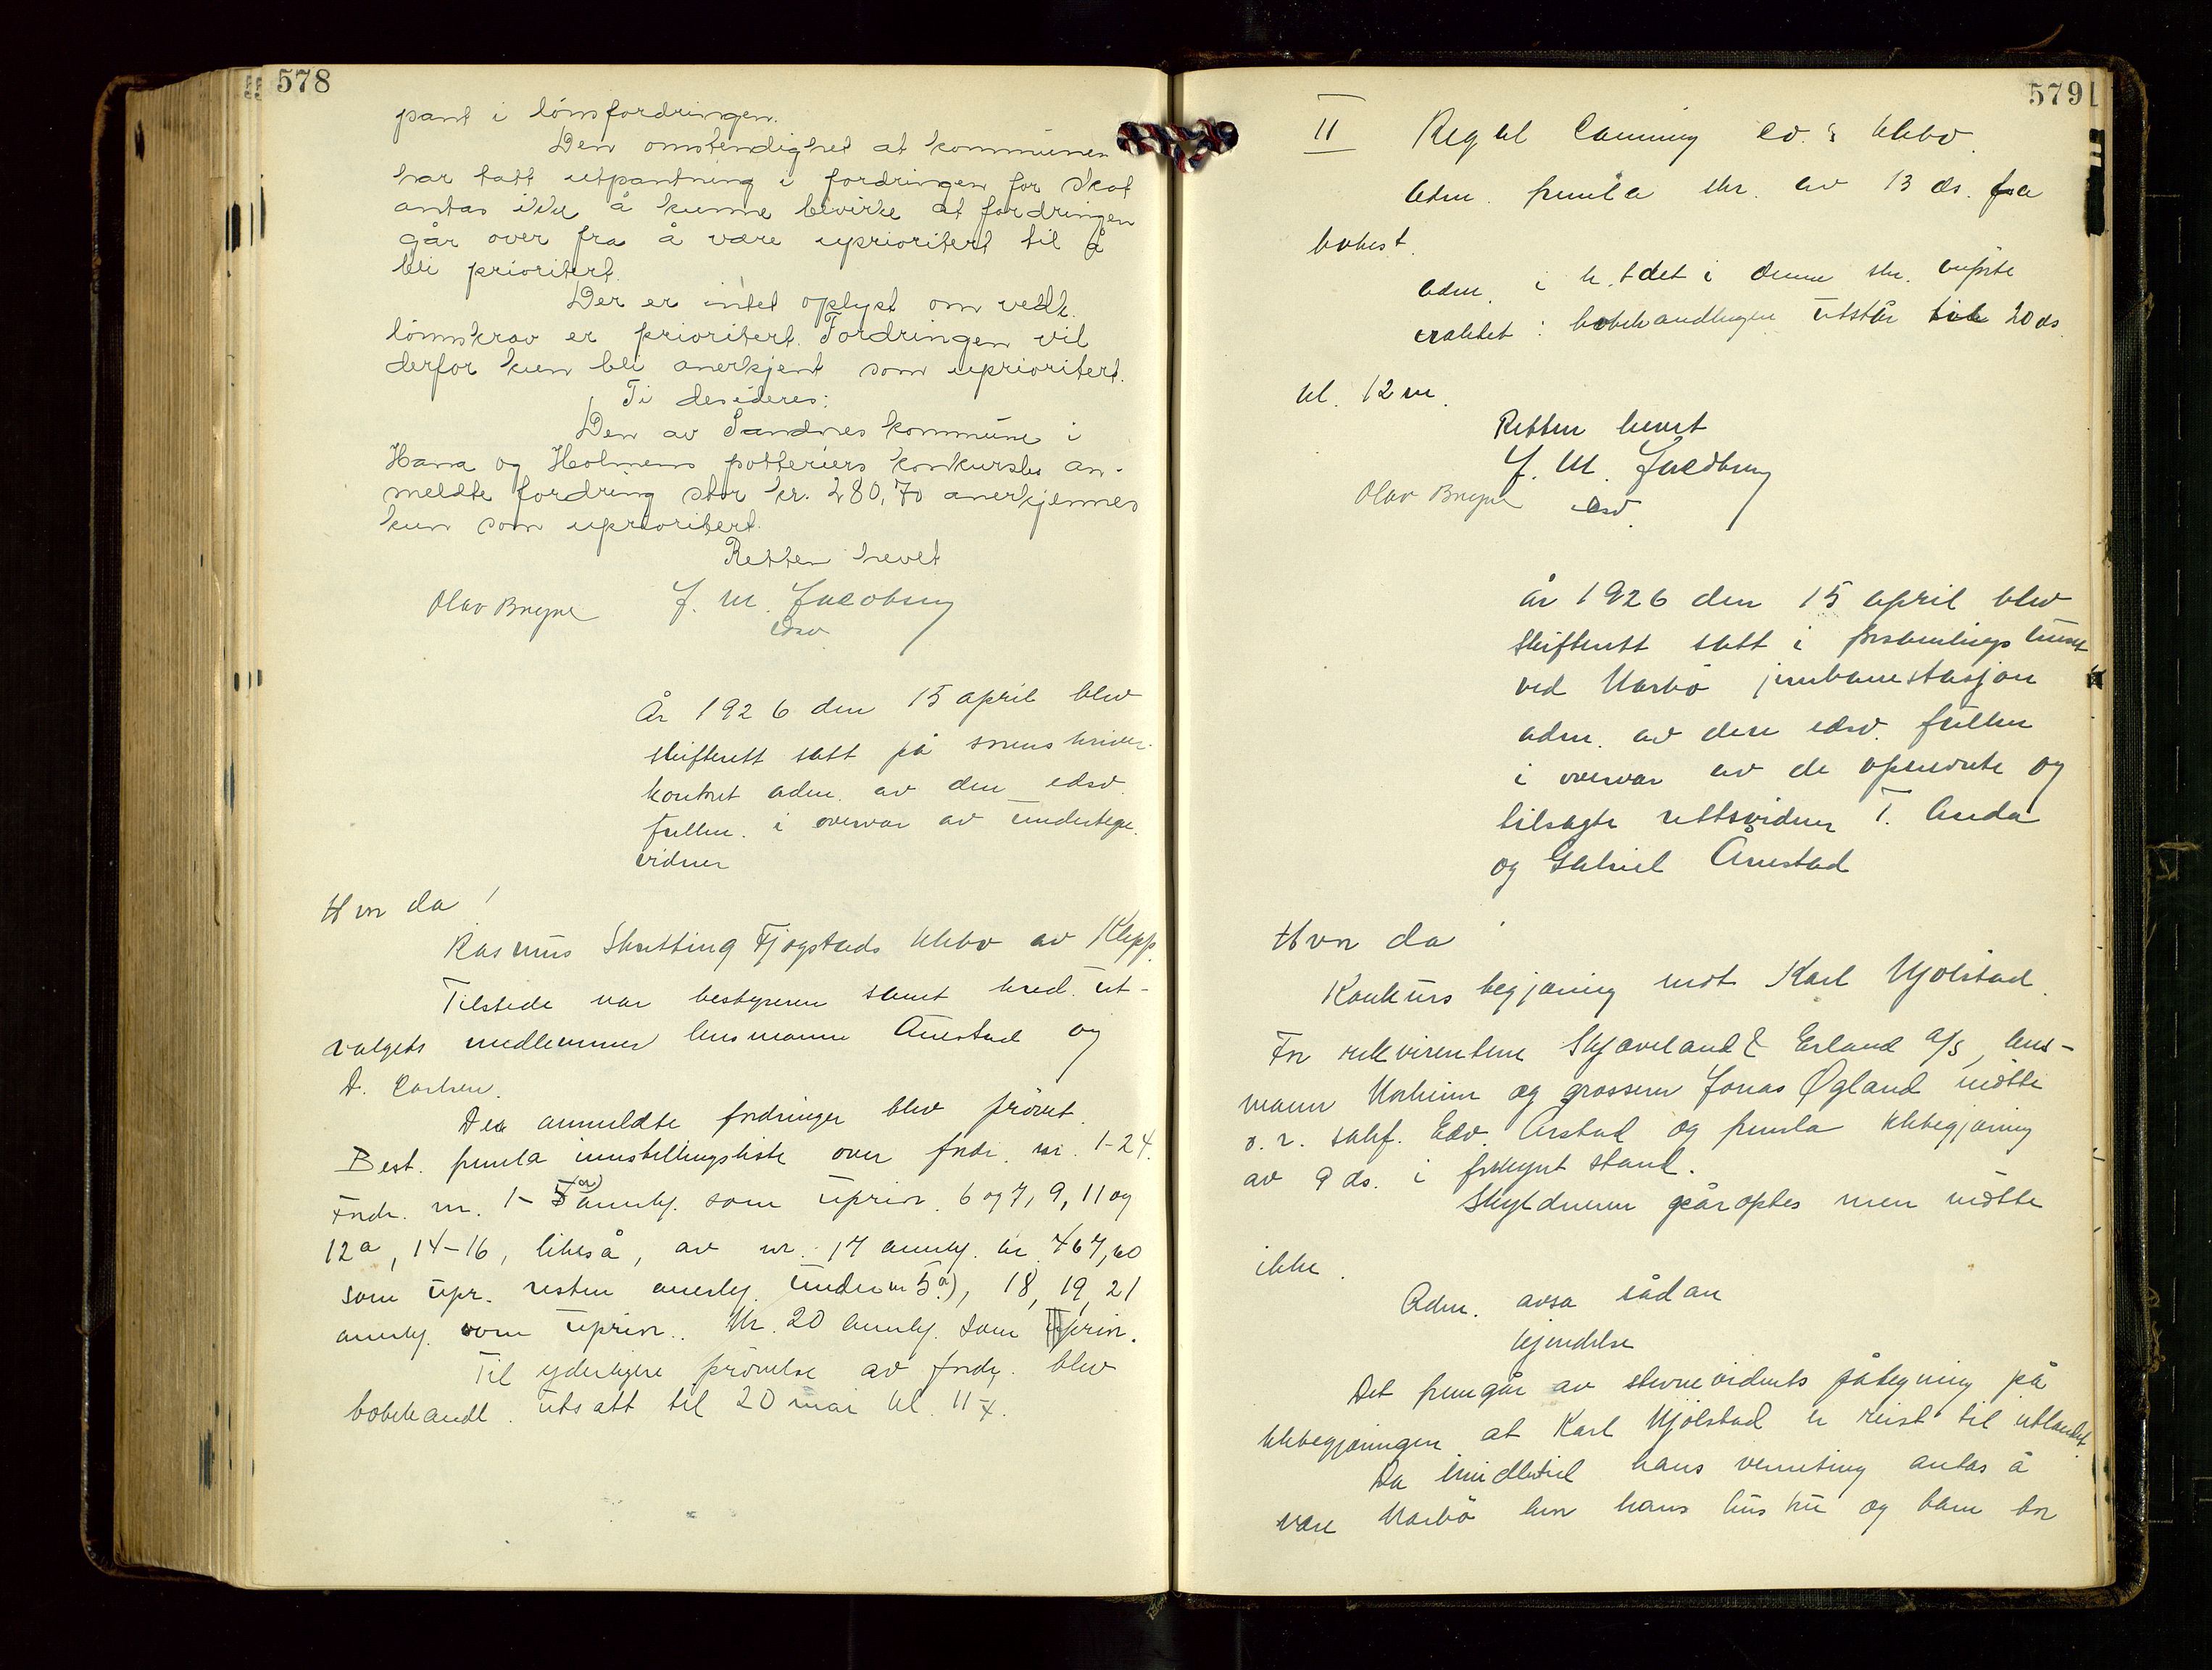 578
pant i lönsfordringen.
Den omstendighet at kommunen
har tatt utpantning i fordringen for skat
antas ikke å kunne bevirke at fordringen
går over fra å være uprioritert til å
bli prioritert.
Der er intet oplyst om vedk.
lönnskrav er prioritert. Fordringen vil
derfor kun bli anerkjent som uprioritert.
Ti desideres:
Den av Sandnes kommune i
Hana og Holmens potteriers konkursbo an-
meldte fordring stor kr. 280,70 anerkjennes
kun som uprioritert.
Retten hevet
Olav Bryne J. M. Jacobsen
edsv
År 1926 den 15 april blev
skifterett satt på sorenskriver-
kontoret adm. av den edsv.
fullm. i overvær av undertegn.
vidner
Hvor da!
Rasmus Skretting Fjogstads kkbo av Klepp.
Tilstede var bestyreren samt kred. ut-
valgets medlemmer lensmann Auestad og
D. Carlsen.
De anmeldte fordringer blev prövet.
Best. fremla innstillingsliste over fordr. nr. 1-24.
Fordr. nr. 1-5 a) anerkj. som uprior. 6 og 7, 9, 11 og
12a, 14-16, likeså, av nr. 17 anerkj. kr. 767,60
som upr. resten anerkj. under nr 5a), 18, 19, 21
anerkj. som uprior.. Nr. 20 anerkj. som prior.
Til yderligere prövelse av fordr. blev
bobehandl. utsatt til 20 mai kl. 11 f.
579
II kkbo.
Adm. fremla skr. av 13 ds. fra
bobest.
Adm. i h. t det i denne skr. anförte
bobehandlingen utstår til 20 ds.
kl. 12 m.
Retten hevet
J. M. Jacobsen
Olav Bryne edsv.
År 1926 den 15 april blev
skifterett satt i forsamlingshuset
ved Nærbö jernbanestasjon
adm. av den edsv. fullm
i overvær av de opnevnte og
tilsagte rettsvidner T. Anda
og Gabriel Auestad
Hvor da!
Konkurs begjæring mot Karl Mjölstad.
For rekvirentene Skjæveland & Erland A/S, lens-
mann Norheim og grosserer Jonas Øgland mötte
o. r. sakf. Edv. Årstad og fremla kkbegjæring
av 9 ds. i forkynt stand.
Skyldneren påroptes men mötte
ikke.
Adm. avsa sådan
kjendelse
Det fremgår av stevnevidnets påtegning på
kkbegjæringen at Karl Mjölstad er reist til utlandet.
Da imidlertid hans verneting antas å
være Nærbö hvor hans hustru og barn bor